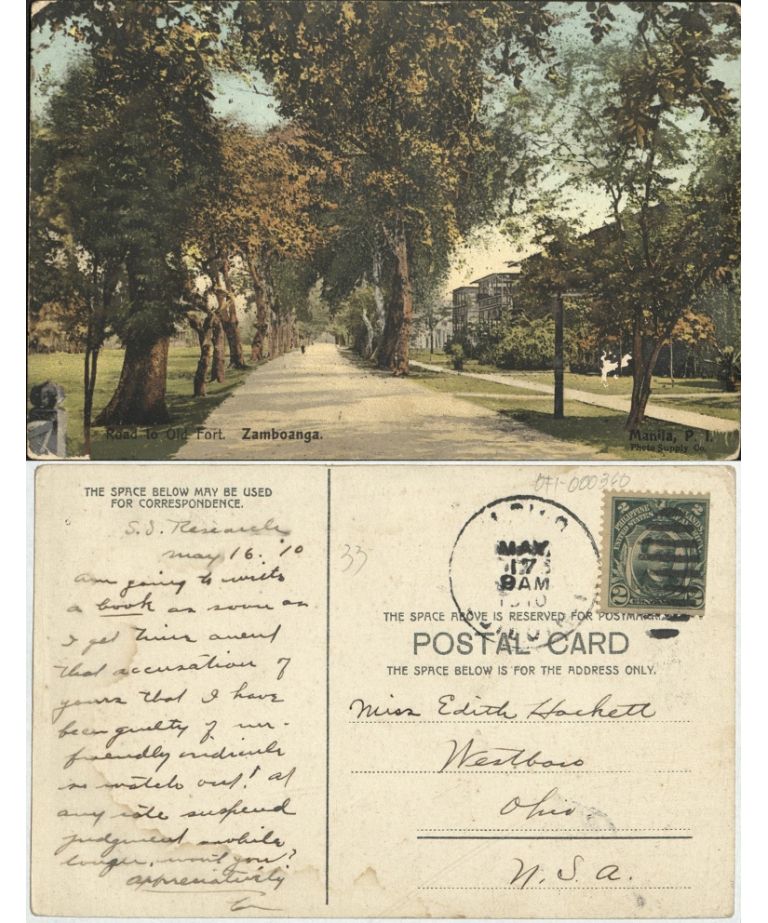 Road to Old Fort. Zamboanga.
Manila, P. I.
Photo Supply Co.
THE SPACE BELOW MAY BE USED
FOR CORRESPONDENCE.
S.S. Research
may 16. '10
am going to write
a book as soon as
I get time anent
that accusation of
yours that I have
been guilty of un-
friendly ridicule
so watch out! at
any rate suspend
judgment awhile
longer, won't you?
appreciatively
33
MAY
17
9 AM
1910
PHILIPPINE ISLANDS
UNITED STATES OF AMERICA
2 2
THE SPACE ABOVE IS RESERVED FOR POSTMARK.
POSTAL CARD
THE SPACE BELOW IS FOR THE ADDRESS ONLY.
Miss Edith Hackett
Westboro
Ohio
U.S.A.